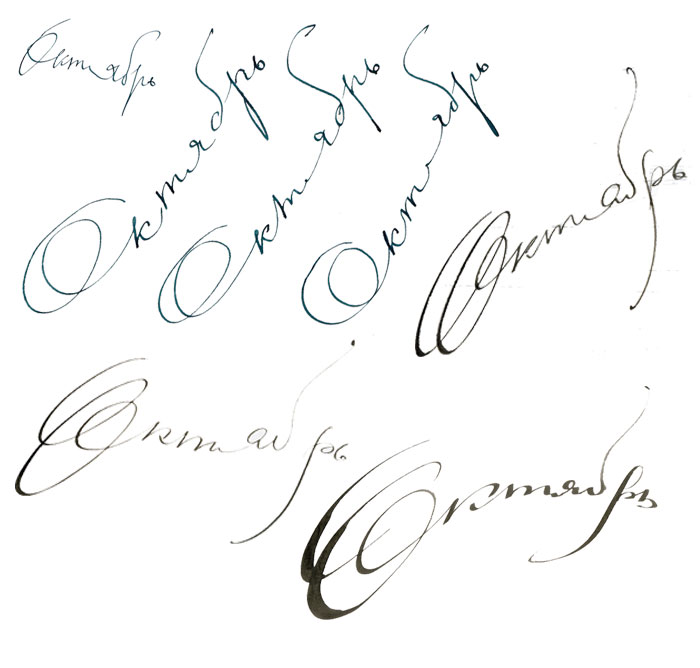 Октябрь
Октябрь
Октябрь
Октябрь
Октябрь
Октябрь
Октябрь